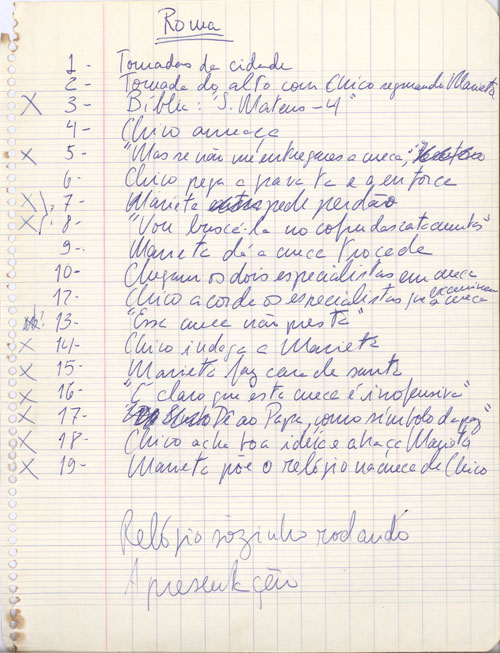 Roma
1 - Tomadas da cidade
2 - Tomada do alto com Chico segurando Marieta
X 3 - Bíblia: "S. Mateus - 4"
4 - Chico ameaça
X 5 - "Mas se não me entregares a cueca,"
6 - Chico pega a gravata e a enforca
X 7 - Marieta pede perdão
X 8 - "Vou buscá-la no cofre das catacumbas"
9 - Marieta dá a cueca
10 - Chegam os dois especialistas em cueca
12 - Chico acorda os especialistas que examinam a cueca
13 - "Essa cueca não presta"
X 14 - Chico indaga a Marieta
X 15 - Marieta faz cara de santa
X 16 - "É claro que esta cueca é inofensiva"
X 17 - Dê ao Papa, como símbolo da paz"
X 18 - Chico acha boa idéia e abraça Marieta
X 19 - Marieta põe o relógio na cueca de Chico
Relógio sòzinho rodando
Apresentação